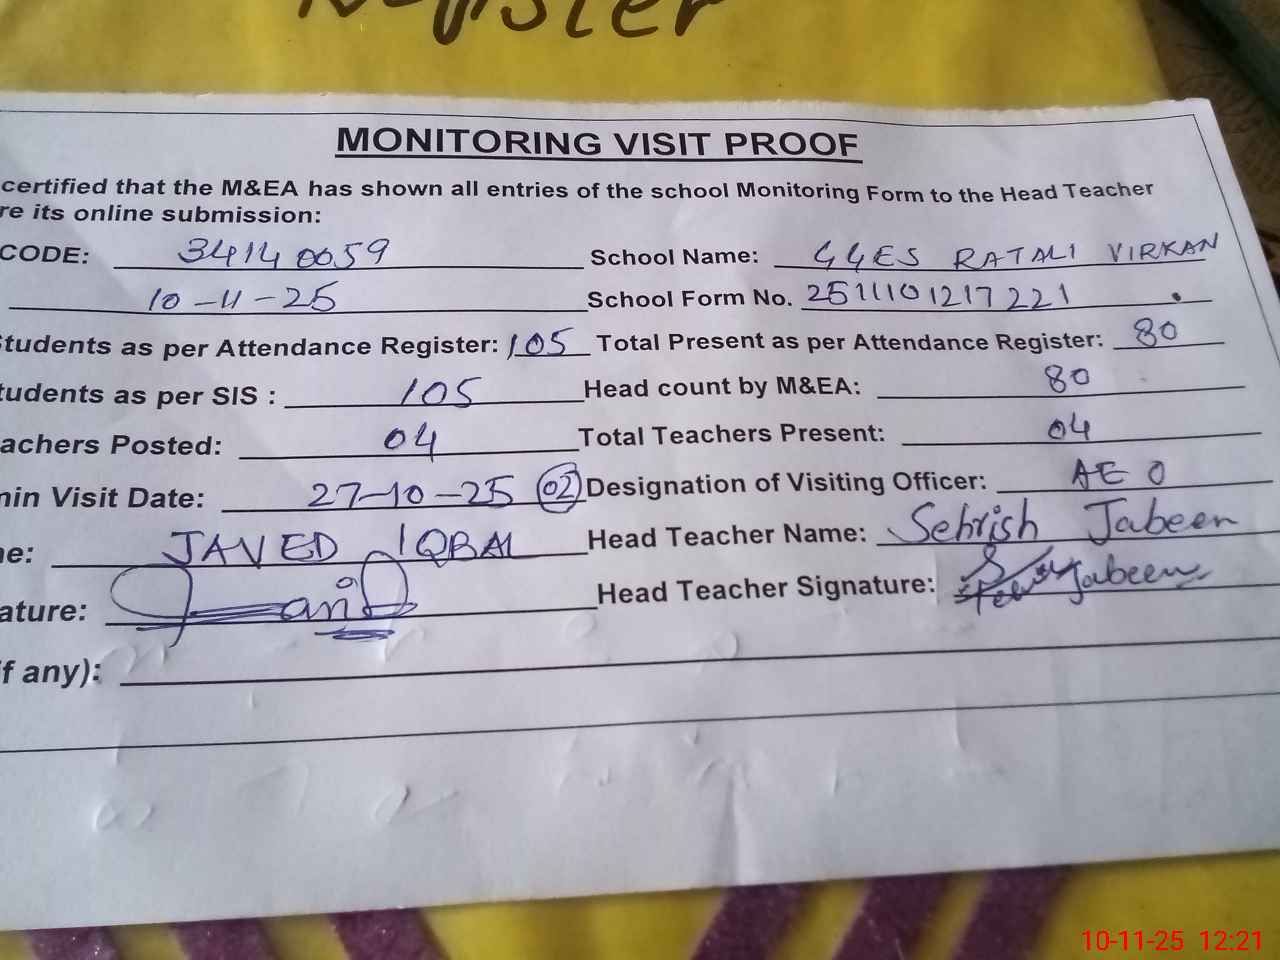 Register
MONITORING VISIT PROOF
certified that the M&EA has shown all entries of the school Monitoring Form to the Head Teacher
re its online submission:
CODE: 34140059 School Name: GGES RATALI VIRKAN
10-11-25 School Form No. 2511101217221
Students as per Attendance Register: 105 Total Present as per Attendance Register: 80
tudents as per SIS : 105 Head count by M&EA: 80
achers Posted: 04 Total Teachers Present: 04
min Visit Date: 27-10-25 02 Designation of Visiting Officer: AEO
ne: JAVED IQBAL Head Teacher Name: Sehrish Jabeen
ature: Head Teacher Signature: Jabeen
f any):
10-11-25 12:21